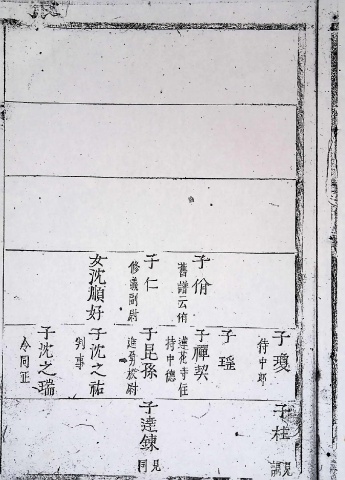 子佾
舊譜云侑
子仁
修義副尉
女沈順好
子瓊
侍中郎
子瑤
子禪契
蓮花寺住
持中德
子昆孫
進勇校尉
子沈之祐
判事
子沈之瑞
令同正
子桂
見譜
子達鍊
見同